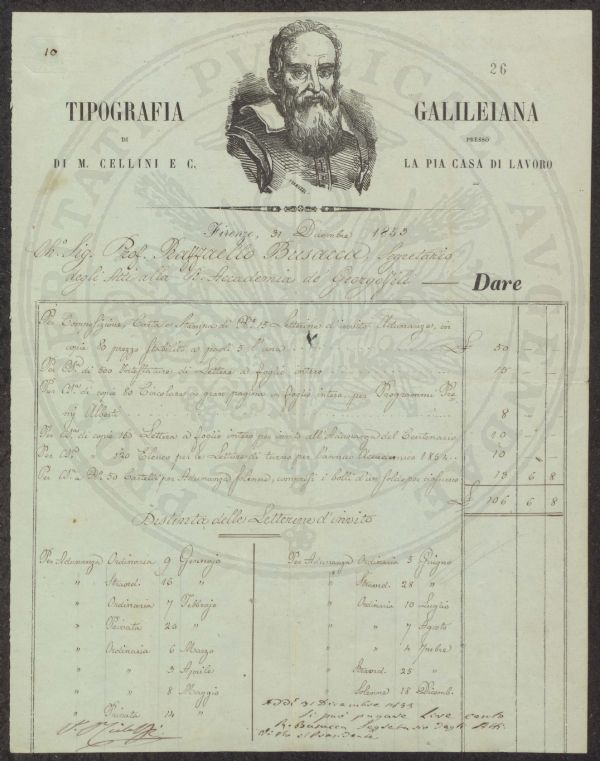 10
26
TIPOGRAFIA GALILEIANA
DI PRESSO
DI M. CELLINI E C. LA PIA CASA DI LAVORO
Firenze, 31 Dicembre 1853
Sig. Prof. Raffaello Busacca, Segretario
degli Atti alla R. Accademia de' Georgofili — Dare
Per Composizione, Carta e Stampa di N.° 15 Letterine d'invito Adunanze, in
copie 80 prezzo stabilito a paoli 5 l'una £ 50 - -
Per di 500 Intestature di Lettera a foglio intero 15 - -
Per di copie 80 Circolare in gran pagina in foglio intero, per Programmi Pre
mj Alberti 8 - -
Per di copie 160 Lettera a foglio intero per invito all'Adunanza del Centenario 10 - -
Per 120 Elenco per le Letture di turno per l'anno Accademico 1854 10 - -
Per N.° 50 Cartelli per Adunanza solenne, compresi i bolli d'un soldo per ciascuno 13 6 8
£ 106 6 8
Distinta delle Letterine d'invito
Per Adunanza Ordinaria 9 Gennajo
" Straord. 16 "
" Ordinaria 7 Febbrajo
" Privata 20 "
" Ordinaria 6 Marzo
" " 3 Aprile
" " 8 Maggio
" Privata 14 "
Per Adunanza Ordinaria 5 Giugno
" Straord. 28 "
" Ordinaria 10 Luglio
" " 7 Agosto
" " 4 7mbre
" Straord. 25 "
" Solenne 18 Dicemb.
Addì 31 Dicembre 1853
Si può pagare Lire cento
R. Busacca Segretario degli Atti
Visto il Presidente